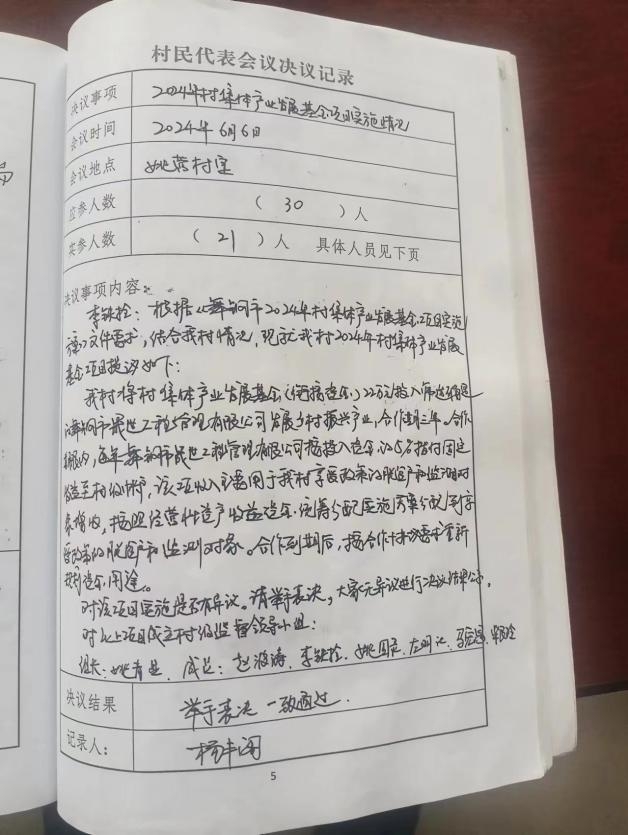 村民代表会议决议记录
决议事项 2024年村集体产业发展基金项目实施情况
会议时间 2024年6月6日
会议地点 姚营村室
应参人数 （ 30 ）人
实参人数 （ 21 ）人 具体人员见下页
决议事项内容：
李铁拴：根据《舞钢市2024年村集体产业发展基金项目实施
方案》文件要求，结合我村情况，现就我村2024年村集体产业发展
基金项目提议如下：
我村将村集体产业发展基金（衔接资金）22万元投入
舞钢市 工程管理有限公司发展乡村振兴产业，合作期三年。合作
期限内，每年舞钢市 工程管理有限公司按投入资金的5%拨付固定
收益至村级账户，该项收入主要用于我村享受政策的脱贫户和监测对
象增收，按照经营性资产收益资金统筹分配实施方案分配到享
受政策的脱贫户和监测对象。合作到期后，按合作 要求重新
规划资金用途。
对该项目实施是否有异议。请举手表决，大家无异议进行决议结果公示。
对以上项目成立村级监督领导小组：
组长：姚青 成员：赵 涛、李铁拴、姚国
决议结果 举手表决 一致通过
记录人： 杨丰阁
5